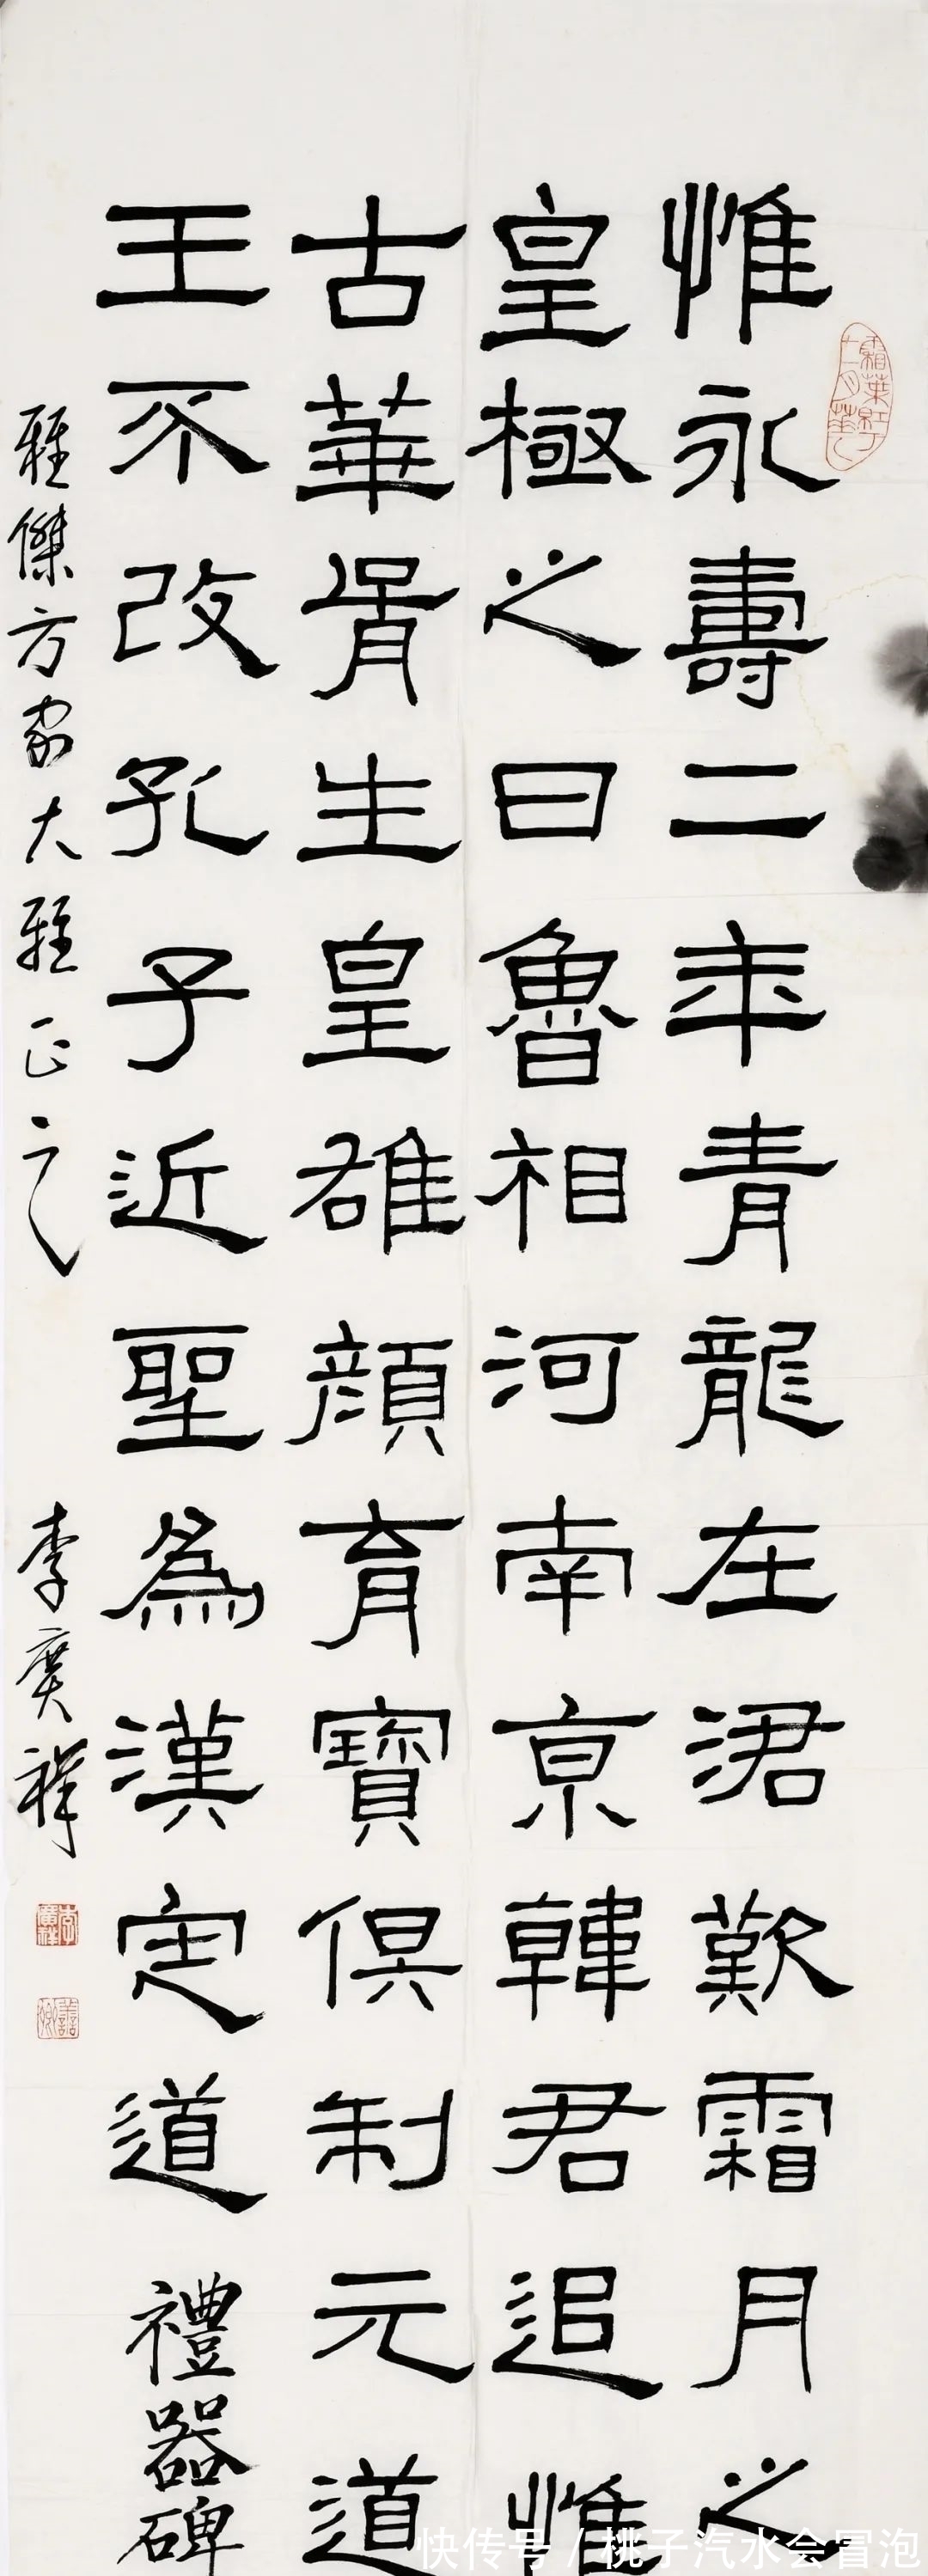 霜葉紅于二月華
惟永壽二年青龍在涒歎霜月之
皇極之日魯相河南京韓君追惟
古華胥生皇雄顏育寶俱制元道
王不改孔子近聖為漢定道 禮器碑
雅傑方家大雅正之 李廣祥
李廣祥
快传号 / 桃子汽水会冒泡